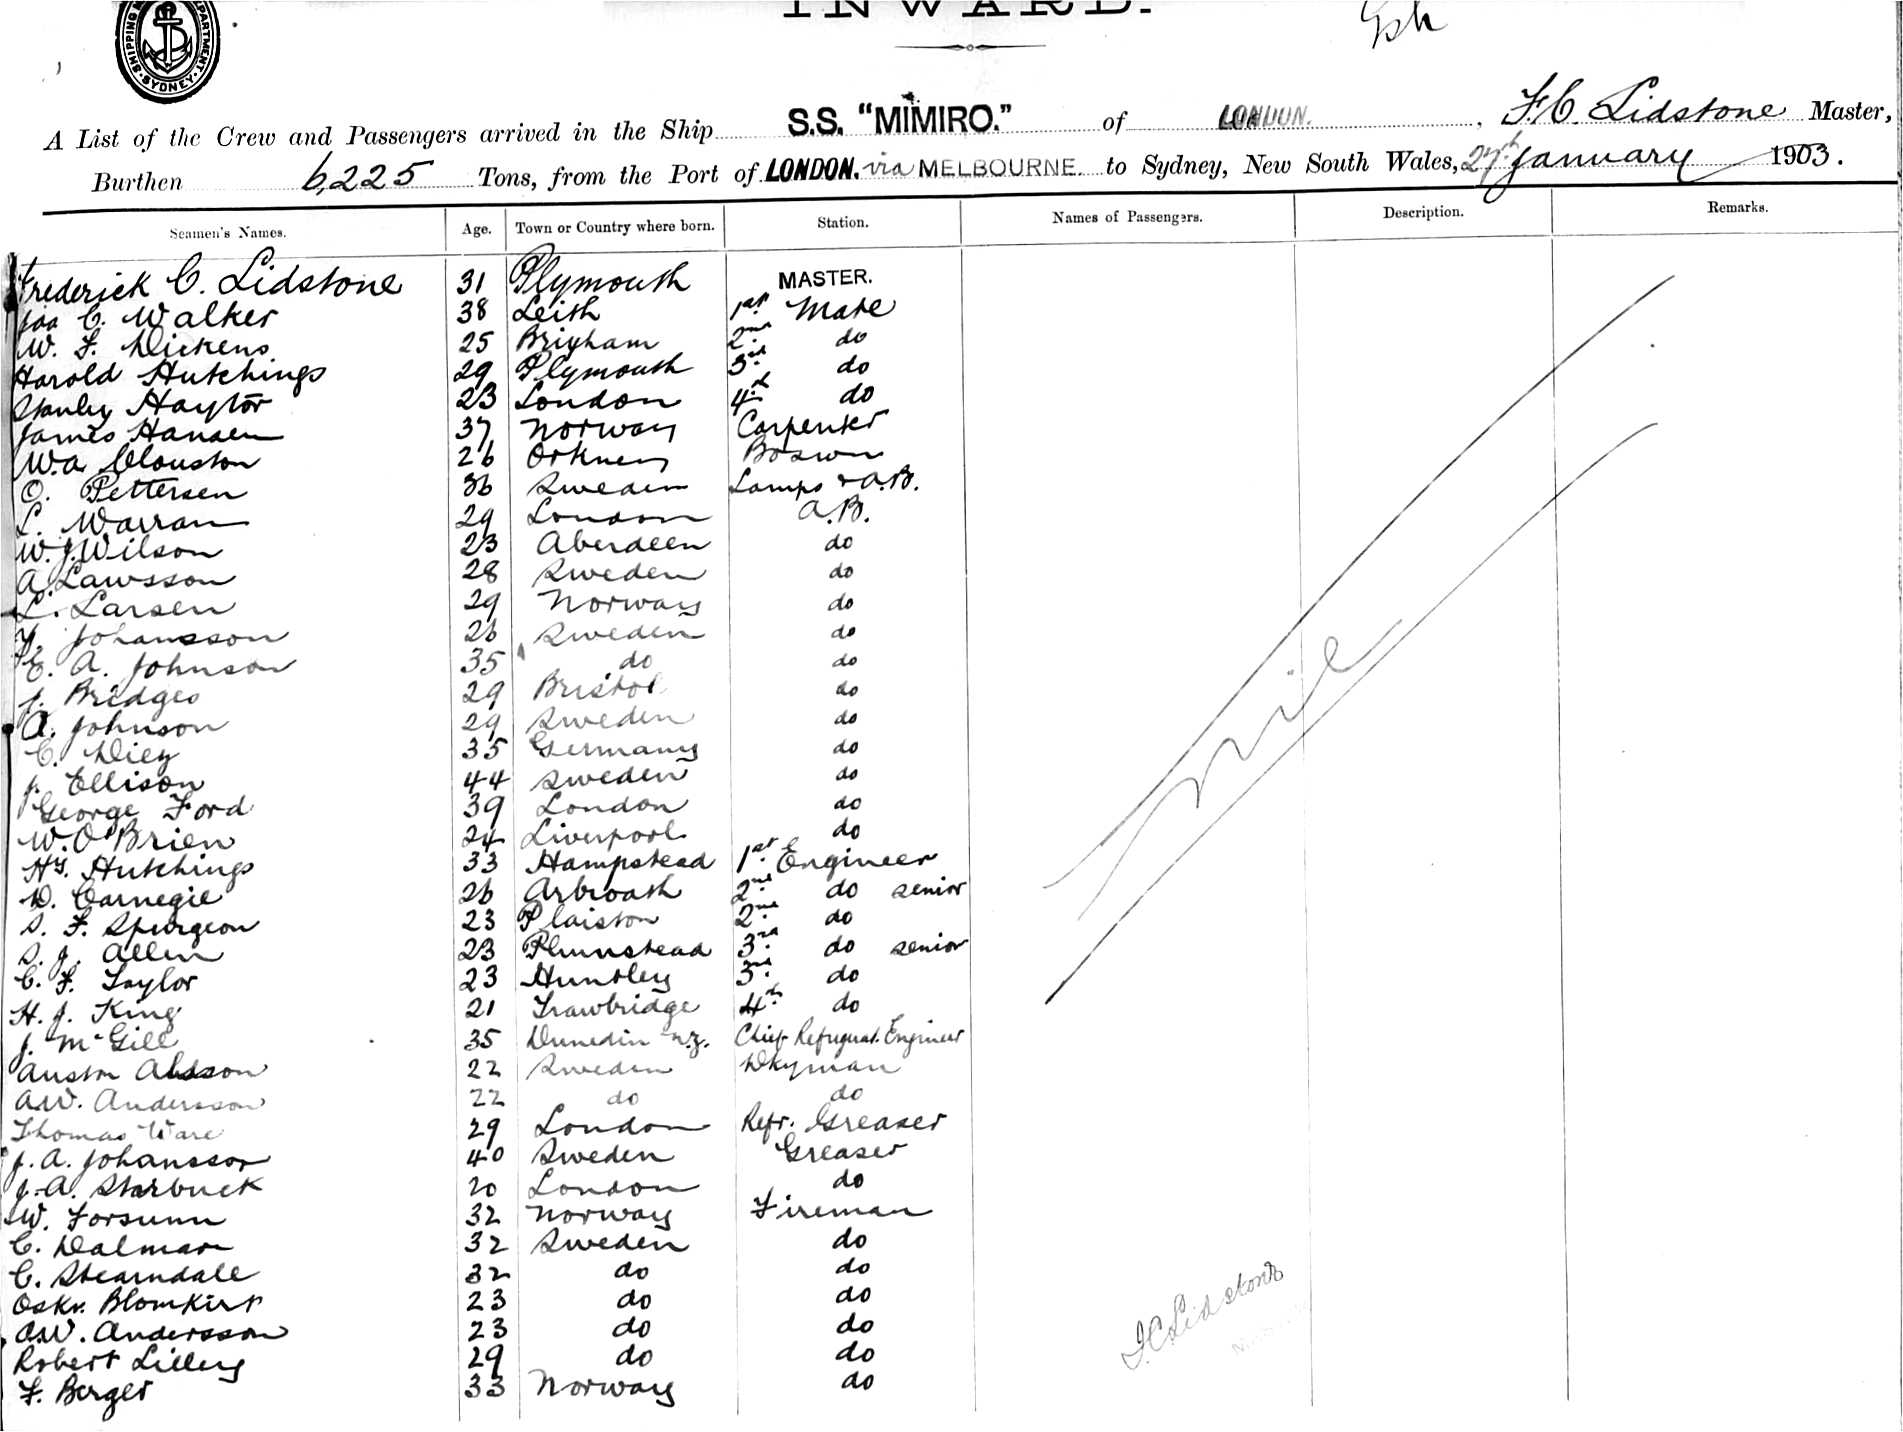 INWARD.
SHIPPING DEPARTMENT. SYDNEY.
A List of the Crew and Passengers arrived in the Ship S.S. "MIMIRO." of LONDON. , F. C. Lidstone Master,
Burthen 6225 Tons, from the Port of LONDON. via MELBOURNE. to Sydney, New South Wales, 27th January 1903.
Seamen's Names. Age. Town or Country where born. Station. Names of Passengers. Description. Remarks.
Frederick C. Lidstone 31 Plymouth MASTER.
Jas C. Walker 38 Leith 1st Mate
W. F. Dickens 25 Brixham 2nd do
Harold Hutchings 29 Plymouth 3rd do
Stanley Haytor 23 London 4th do
James Hansen 37 Norway Carpenter
W.A. Clouston 26 Orkney Boswn
O. Pettersen 36 Sweden Lamps & A.B.
L. Warran 29 London A.B.
W. J. Wilson 23 Aberdeen do
A. Lawsson 28 Sweden do
L. Larsen 29 Norway do
Johansson 26 Sweden do
E. A. Johnson 35 do do
J. Bridges 29 Bristol do
A. Johnson 29 Sweden do
C. Diey 35 Germany do
J. Ellison 44 Sweden do
George Ford 39 London do
W. O'Brien 24 Liverpool do
Hy. Hutchings 33 Hampstead 1st Engineer
D. Carnegie 26 Arbroath 2nd do senior
S. F. Spurgeon 23 Plaiston 2nd do
S. J. Allen 23 Plumstead 3rd do senior
C. F. Taylor 23 Huntley 3rd do
H. J. King 21 Trawbridge 4th do
J. McGill 35 Dunedin N.Z. Chief Refrigerat. Engineer
22 Sweden Dkyman
A.W. Andersson 22 do do
Thomas Ware 29 London Refr. Greaser
J. A. Johansson 40 Sweden Greaser
J. A. Starbuck 20 London do
W. Forsunn 32 Norway Fireman
C. Dalman 32 Sweden do
C. Stearndale 32 do do
Oskr. Blomkist 23 do do
A.W. Andersson 23 do do
Robert Lilley 29 do do
F. Berger 33 Norway do
Nil
F. C. Lidstone